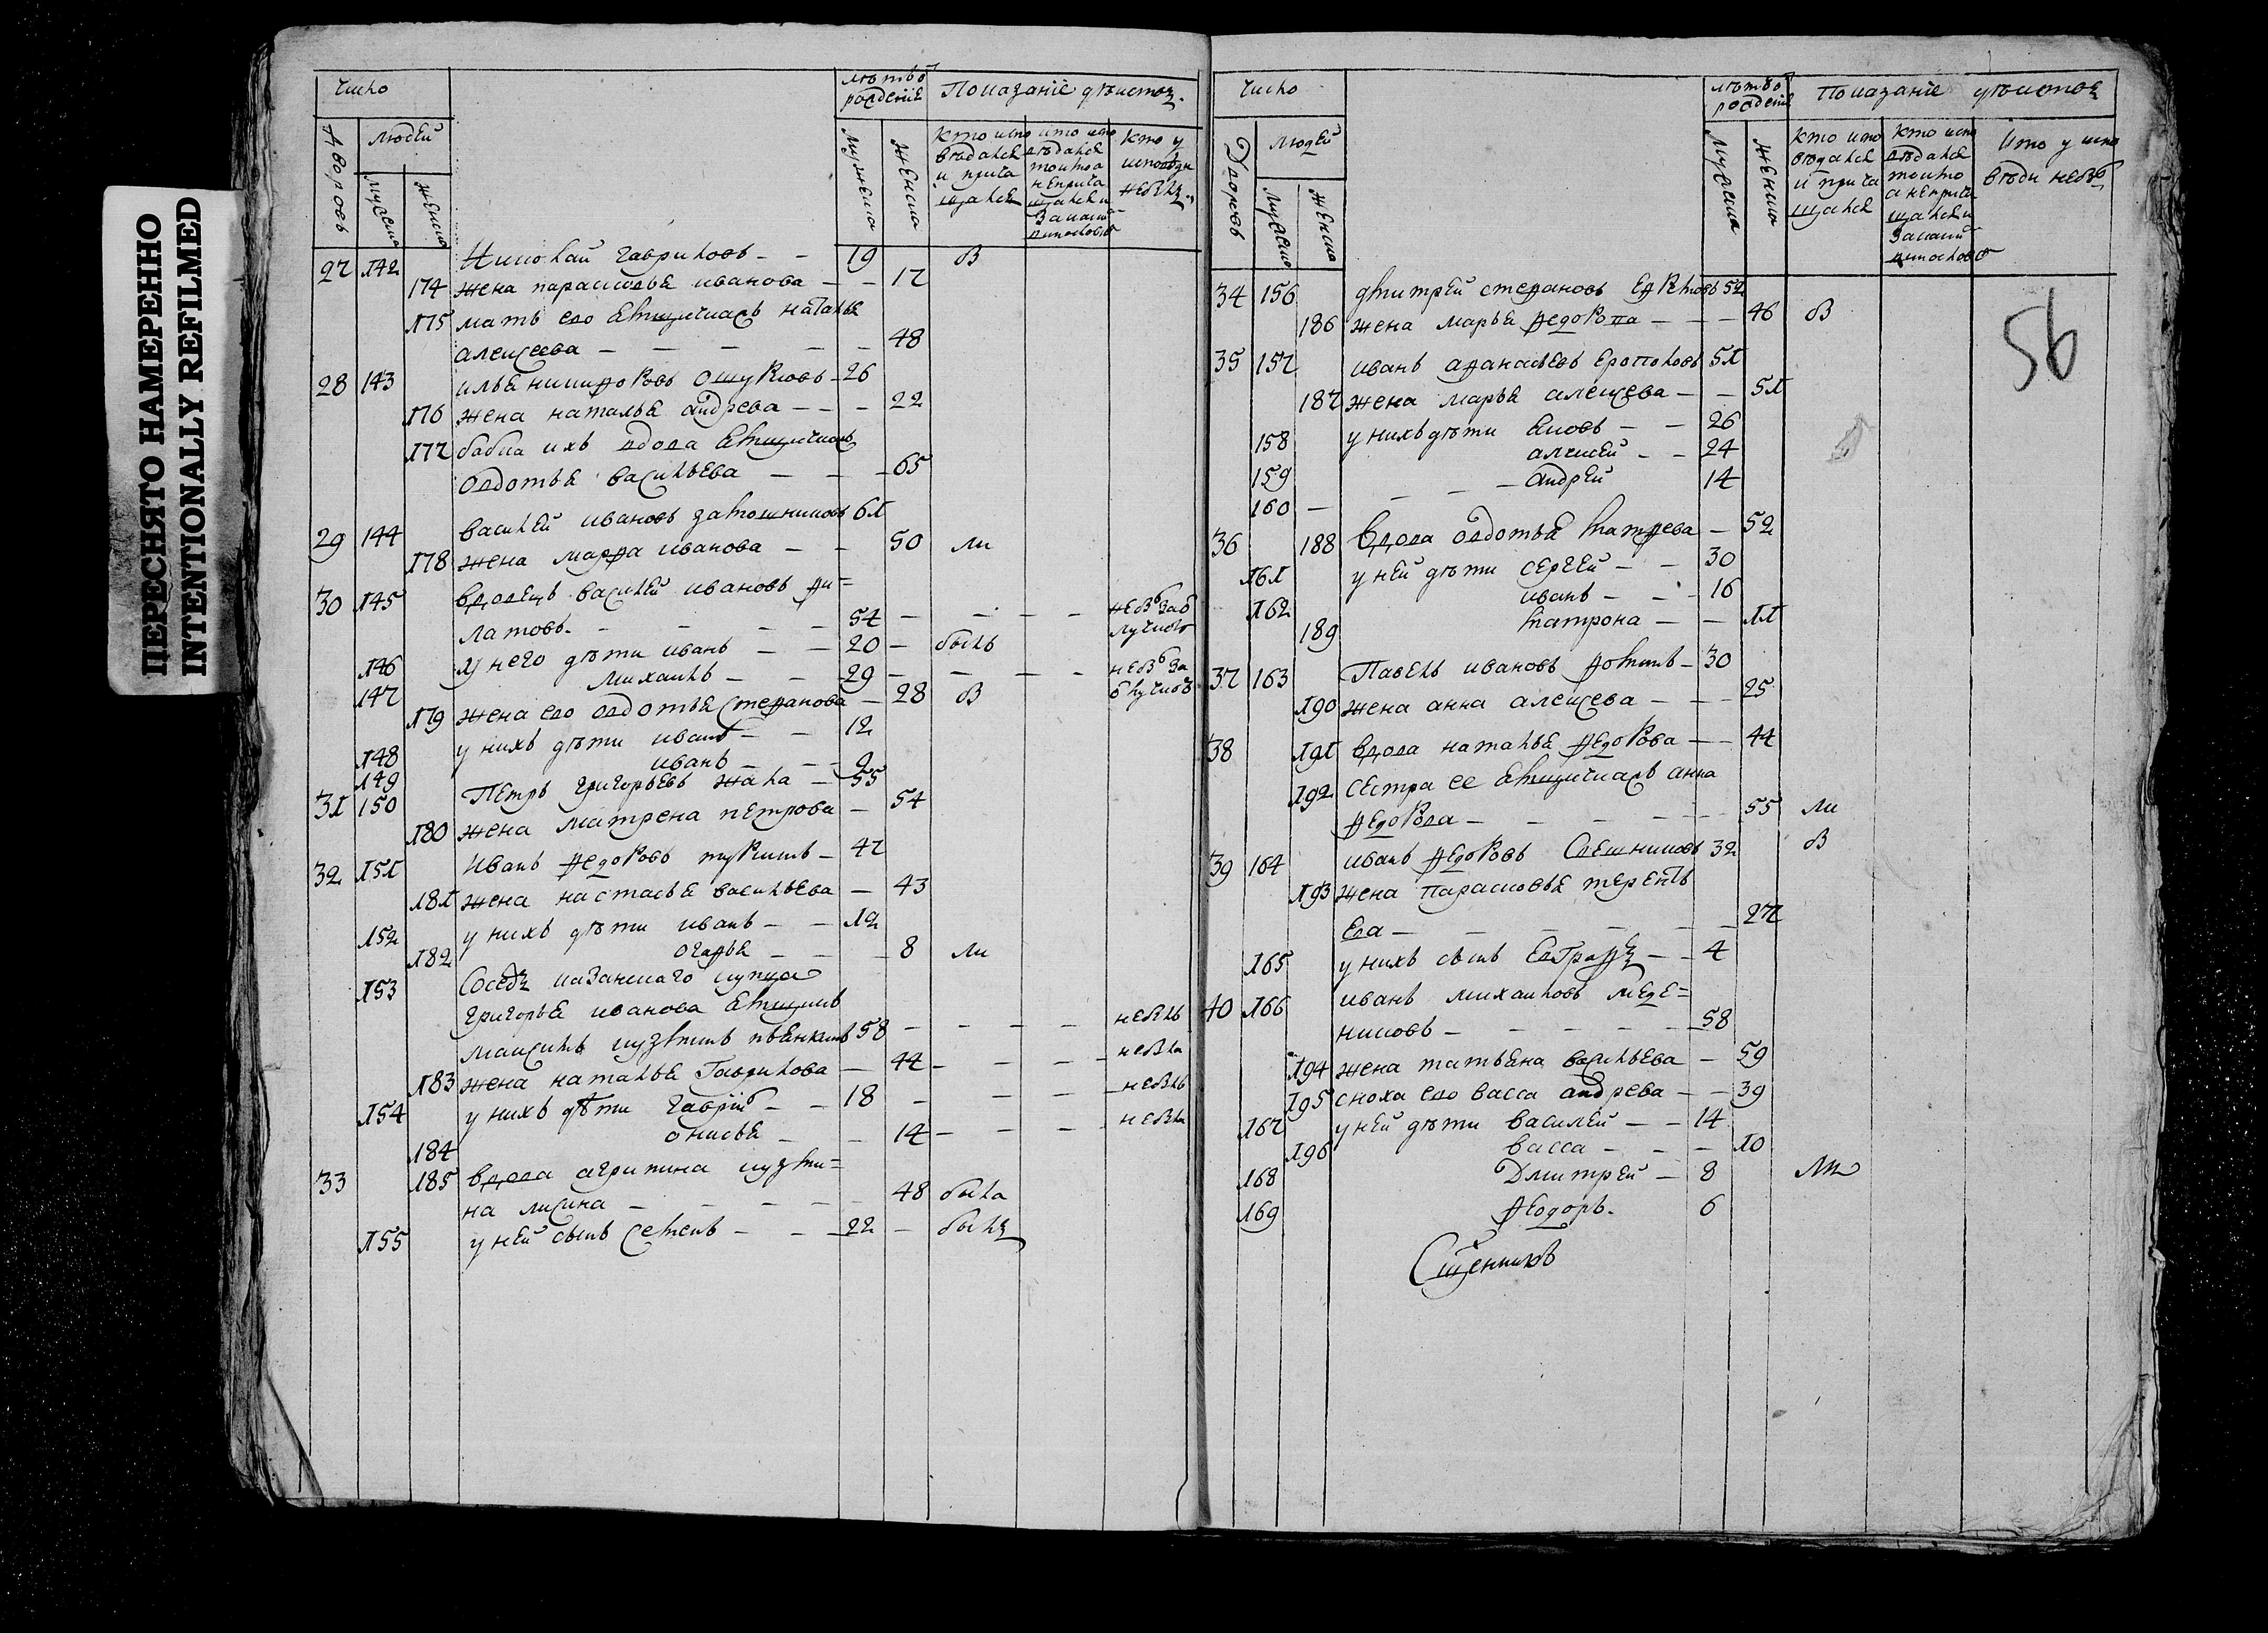 ПЕРЕСНЯТО НАМЕРЕННО
INTENTIONALLY REFILMED
число
лѣтъ ѿ рождениѧ
Показание дѣйства
Дворовъ
людей
мужеска
женска
мужеска
женска
кто испо
вѣдался
и прича
щался
кто испо
вѣдался
токмо а
неприча
щался и
за каким
виносло
кто у
исповѣди
небылъ
27 142 Николай Гавриловъ - - 19 в
174 жена парасковья иванова - - 17
175 мать ево ямщичиха наталья
алексеева - - - - - 48
28 143 илья никифоровъ - 26
176 жена наталья андрева - - - 22
177 бабка ихъ вдова ямщичиха
овдотья васильева - - - 65
29 144 василей ивановъ 61
178 жена марфа иванова - - 50 ли
30 145 вдовецъ василей ивановъ фи=
латовъ - - - - 54 - - - - небъ за от
лучкою
146 у него дѣти иванъ - - 20 - былъ
147 михаилъ - - 29 - - - - небъ за
отлучкою
179 жена ево овдотья степанова - 28 в
148 у нихъ дѣти иванъ - - 12
149 иванъ - - - 9
31 150 Петръ григорьевъ жала - 55
180 жена матрена петрова - 54
32 151 Иванъ федоровъ - 47
181 жена настасья васильева - 43
152 у нихъ дѣти иванъ - - 12
182 огафья - - - 8 ли
153 Соседъ казанского купца
григорья иванова
максимъ кузминъ 58 - - - - небылъ
183 жена наталья Гаврилова - 44 - - - - небыла
154 у нихъ дѣти гаврiилъ - - 18 - - - - небылъ
184 онисья - - 14 - - - - небыла
33 185 вдова агрипина кузми=
на лисина - - - - 48 была
155 у ней сынъ семенъ - - - 22 - былъ
число
лѣтъ ѿ рождениѧ
Показание дѣйства
Дворовъ
людей
мужеска
женска
мужеска
женска
кто испо
вѣдался
и прича
щался
кто испо
вѣдался
токмо
а неприча
щался и
за каким
виносло
кто у испо
вѣди небъ
34 156 дмитрей степановъ 52
186 жена марья федорова - - - 46 в
56
35 157 иванъ афанасьевъ ерополовъ 51
187 жена марья алексеева - - 51
158 у нихъ дѣти яковъ - - 26
159 алексей - - 24
160 - - - - андрей 14
36 188 Вдова овдотья матфева - 52
161 у ней дѣти сергей - - 30
162 иванъ - - - 16
189 матрона - - 11
37 163 Павелъ ивановъ фоминъ - 30
190 жена анна алексева - - - 25
38 191 вдова наталья федорова - - 44
192 сестра ее ямщичиха анна
федорова - - - - - 55 ли
39 164 иванъ федоровъ Свешниковъ 32 в
193 жена парасковья терентъ
ева - - - - - - 27
165 у нихъ сынъ Евграфъ - - 4
40 166 иванъ михаиловъ меде=
никовъ - - - - - 58
194 жена татьяна васильева - 59
195 сноха ево васса андрева - - 39
167 у ней дѣти василей - - 14
196 васса - - - 10
168 Дмитрей - 8 Ли
169 феодоръ - 6
Сщенникъ